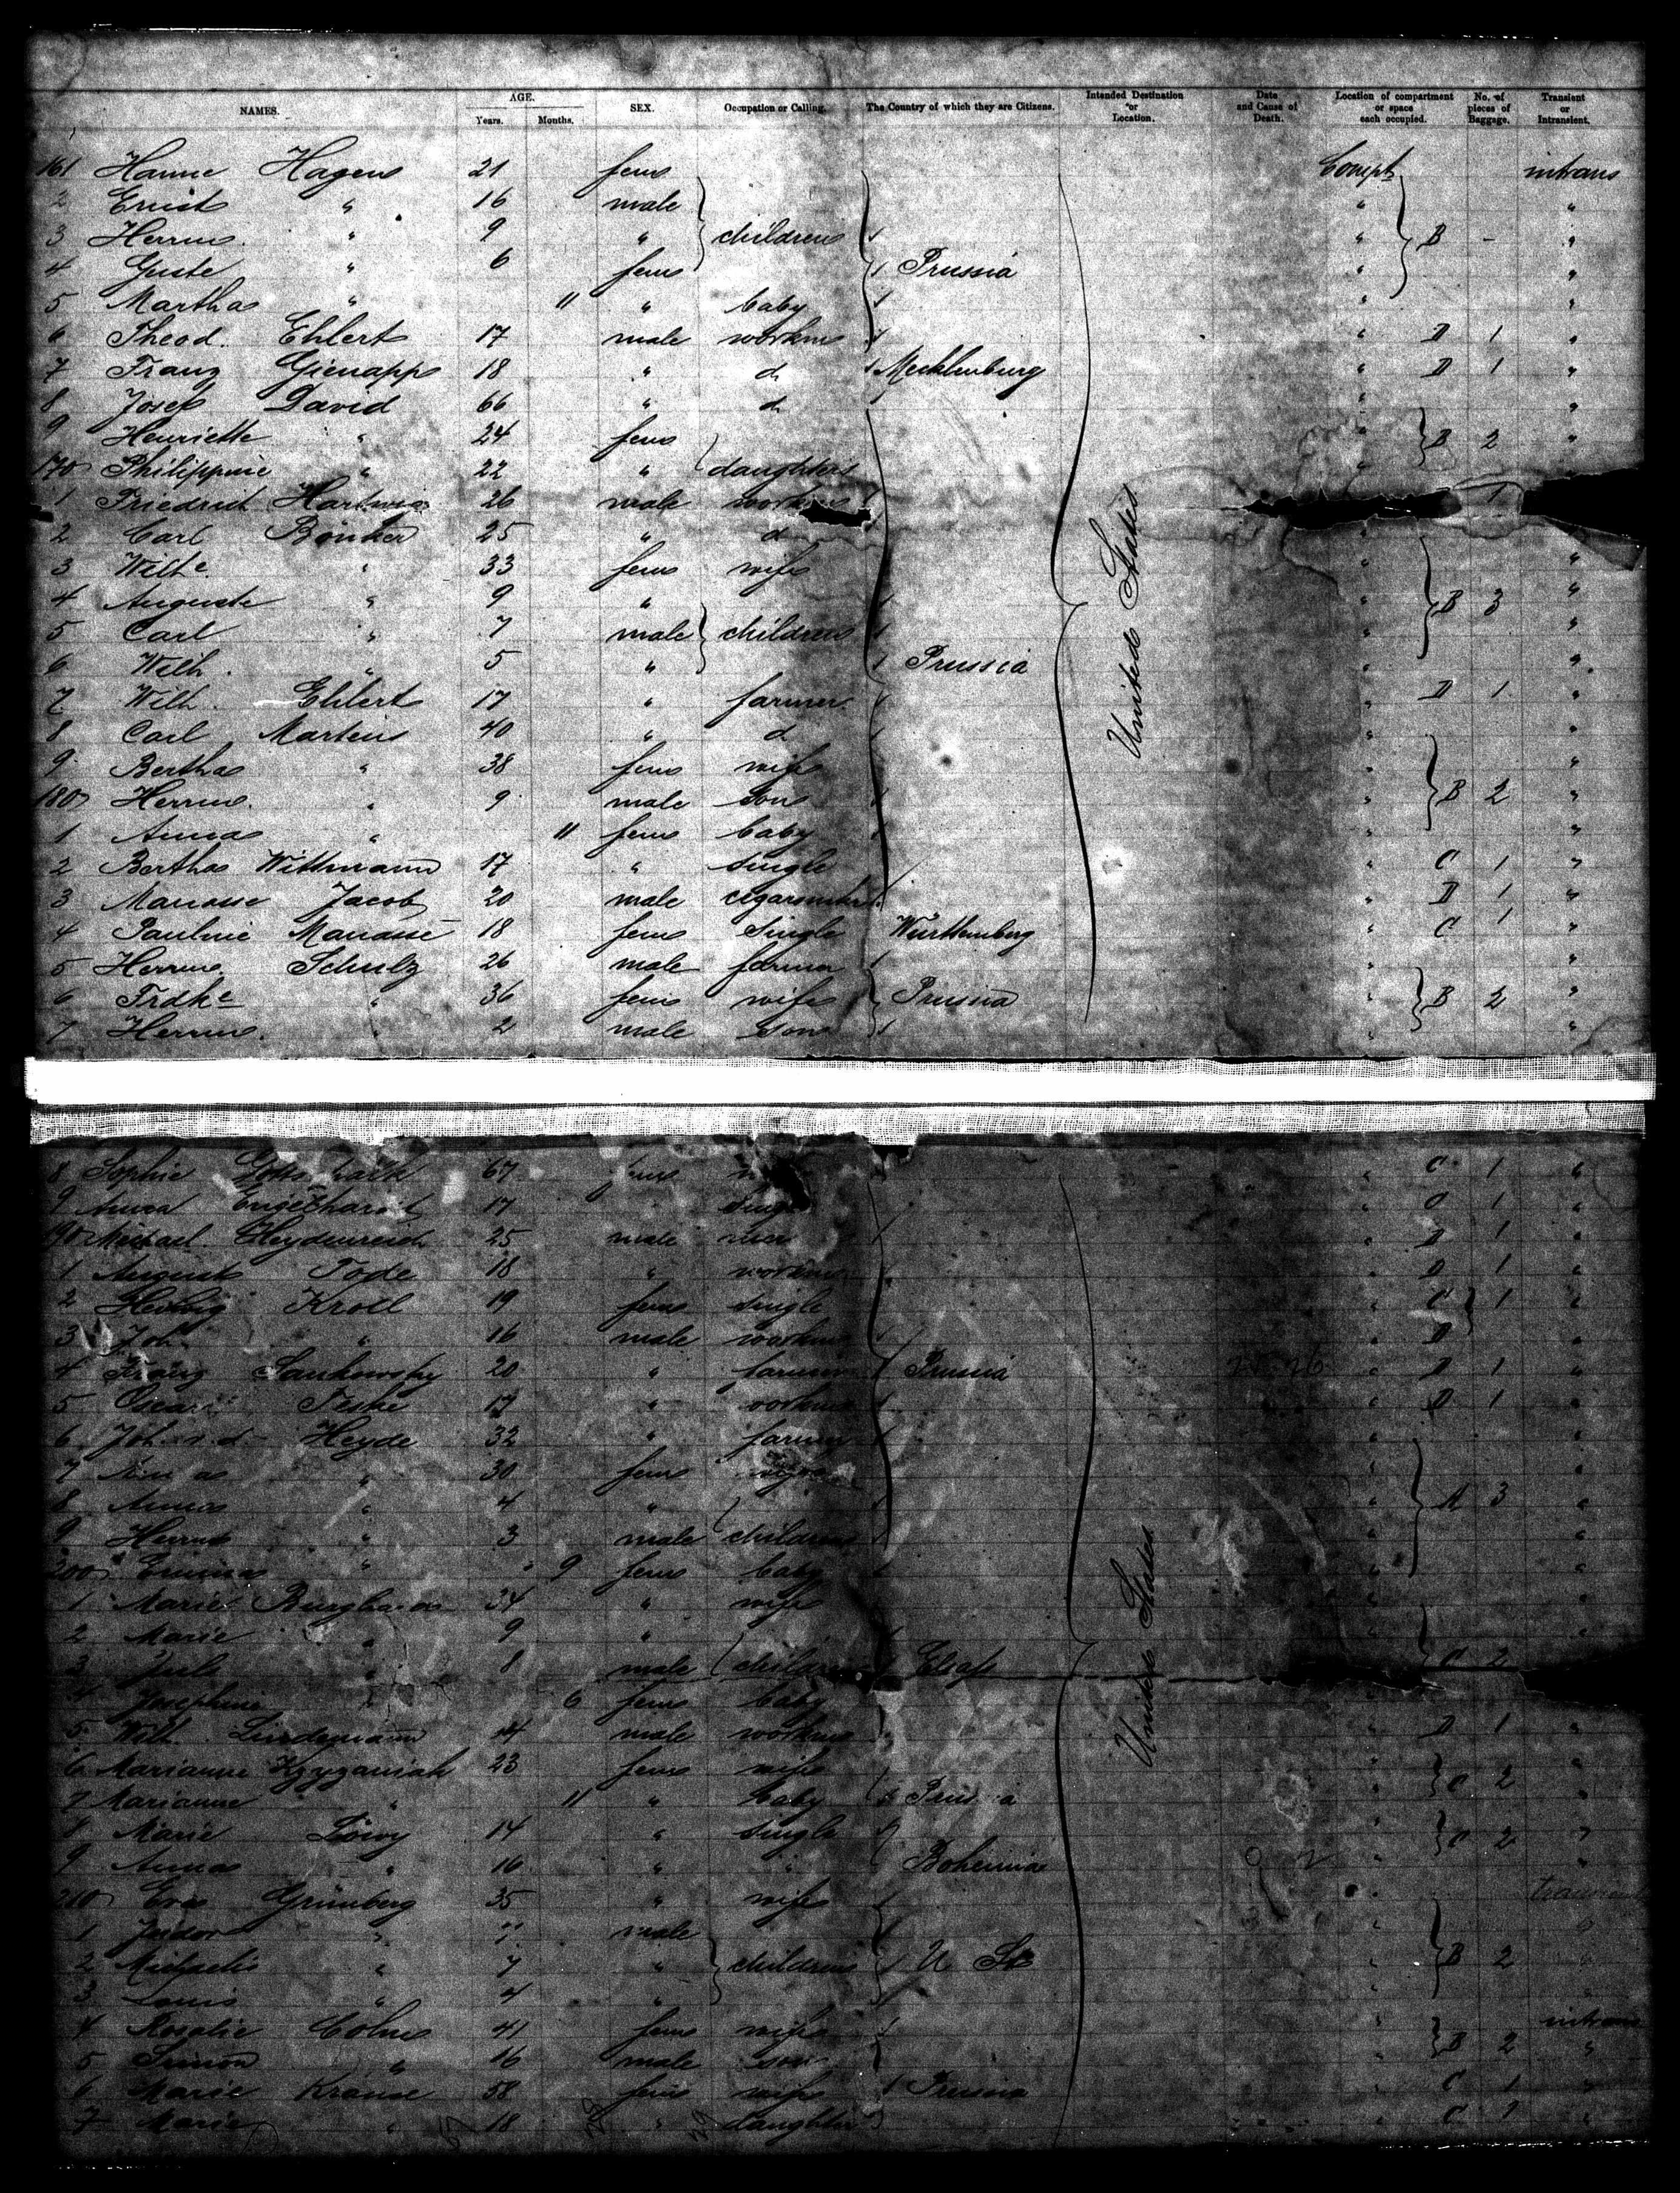 NAMES. AGE. Years. Months. SEX. Occupation or Calling. The Country of which they are Citizens. Intended Destination or Location. Date and Cause of Death. Location of compartment or space each occupied. No. of pieces of Baggage. Transient or Intransient.
161 Hanne Hagen 21 fem Compt intrans
2 Ernst " 16 male " "
3 Herrm. " 9 " children " B - "
4 Guste " 6 fem Prussia " "
5 Martha " 11 " baby " "
6 Theod. Ehlert 17 male workm " D 1 "
7 Franz Gienapp 18 " d Mecklenburg " D 1 "
8 Josef David 66 " d " "
9 Henriette " 24 fem " B 2 "
170 Philippine " 22 " daughters "
1 Friedrich Hartwig 26 male 1
2 Carl Bönker 25 " d " "
3 Wilhe. " 33 fem wife " "
4 Auguste " 9 " " B 3 "
5 Carl " 7 male children " "
6 Wilh. " 5 " Prussia " "
7 Wilh. Ehlert 17 " farmer " D 1 "
8 Carl Martens 40 " d " "
9 Bertha " 38 fem wife " "
180 Herrm. " 9 male son " B 2 "
1 Anna " 11 fem baby " "
2 Bertha Wittmann 17 " single " C 1 "
3 Manasse Jacob 20 male " D 1 "
4 Pauline Manasse 18 fem single Württemberg " C 1 "
5 Herrm. Schulz 26 male farmer " "
6 Frdke " 36 fem wife Prussia " B 2 "
7 Herrm. " 2 male son " "
United States
8 Sophie Gottschalk 67 fem " C 1 "
9 Anna Engelhardt 17 " C 1 "
190 Michael Heydenreich 25 male " D 1 "
1 August Tode 18 " workm " D 1 "
2 Hedwig Kroll 19 fem single " C 1 "
3 Joh. " 16 male workm " D "
4 Franz Sankowsky 20 " farmer Prussia " D 1 "
5 Oscar Teske 17 " workm " D 1 "
6 Joh. v. d. Heyde 32 " farmer " "
7 " 30 fem " "
8 Anna " 4 " " A 3 "
9 Herrm " 3 male children " "
200 Emma " 9 fem baby " "
1 Marie 34 " wife " "
2 Marie " 9 " " "
3 " 8 male children Elsaß C 2
4 Josephine " 6 fem baby
5 Wilh. Lindemann male workm " D 1 "
6 Marianne 23 fem wife " "
7 Marianne " 11 " baby Prussia " C 2 "
8 Marie Löwy 14 " single " "
9 Anna " 16 " " Bohemia " C 2 "
210 Eva Grünberg 35 " wife "
1 Isidor " male "
2 Michaelis " 7 " children U St " B 2 "
3 Louis " 4 " " "
4 Rosalie Cohn 41 fem wife " intrans
5 Simon " 16 male son " B 2 "
6 Marie Krause 58 fem wife Prussia " C 1 "
7 Marie " 18 " daughter " C 1 "
United States